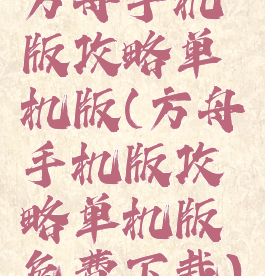 方舟手机
版攻略单
机版(方舟
手机版攻
略单机版
免费下载)